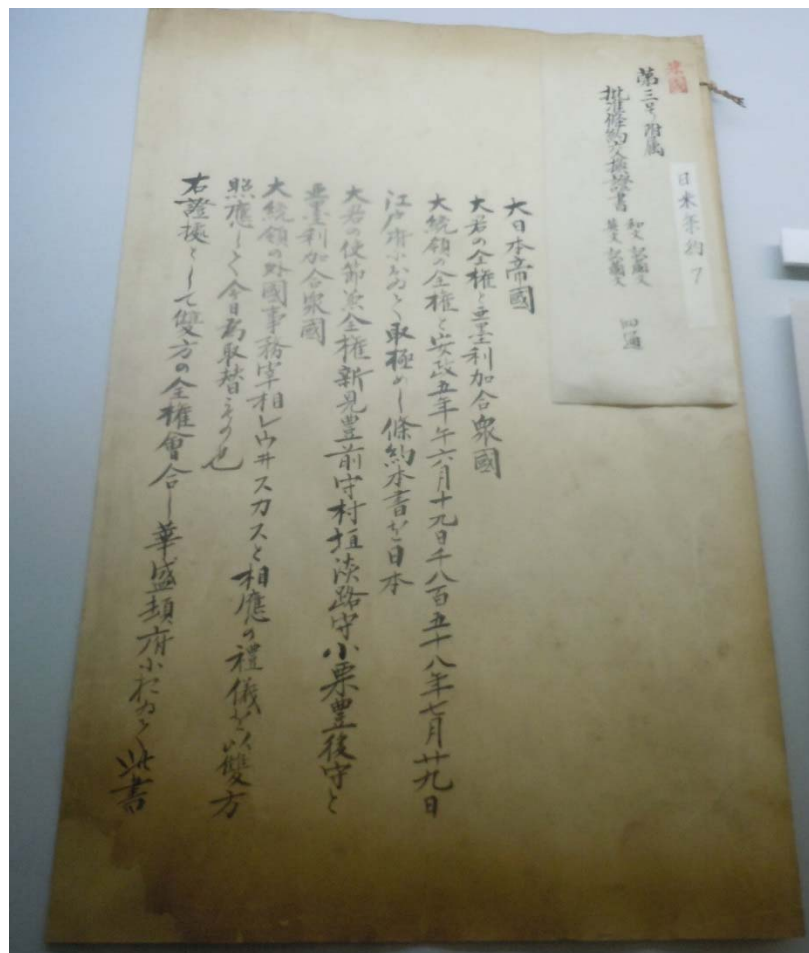 米國
第三号附属
批准條約交換證書 和文 記蘭文 英文 記蘭文 四通
日米条約 7
大日本帝國
大君の全権と亜墨利加合衆國
大統領の全権と安政五年午六月十九日千八百五十八年七月廿九日
江戸府小おゐて取極めし條約本書を日本
大君の使節兼全権新見豊前守村垣淡路守小栗豊後守と
亜墨利加合衆國
大統領の外國事務宰相レウヰスカスと相應の禮儀を以雙方
照應して今日爲取替もの也
右證拠として雙方の全権會合し華盛頓府小おゐて此書